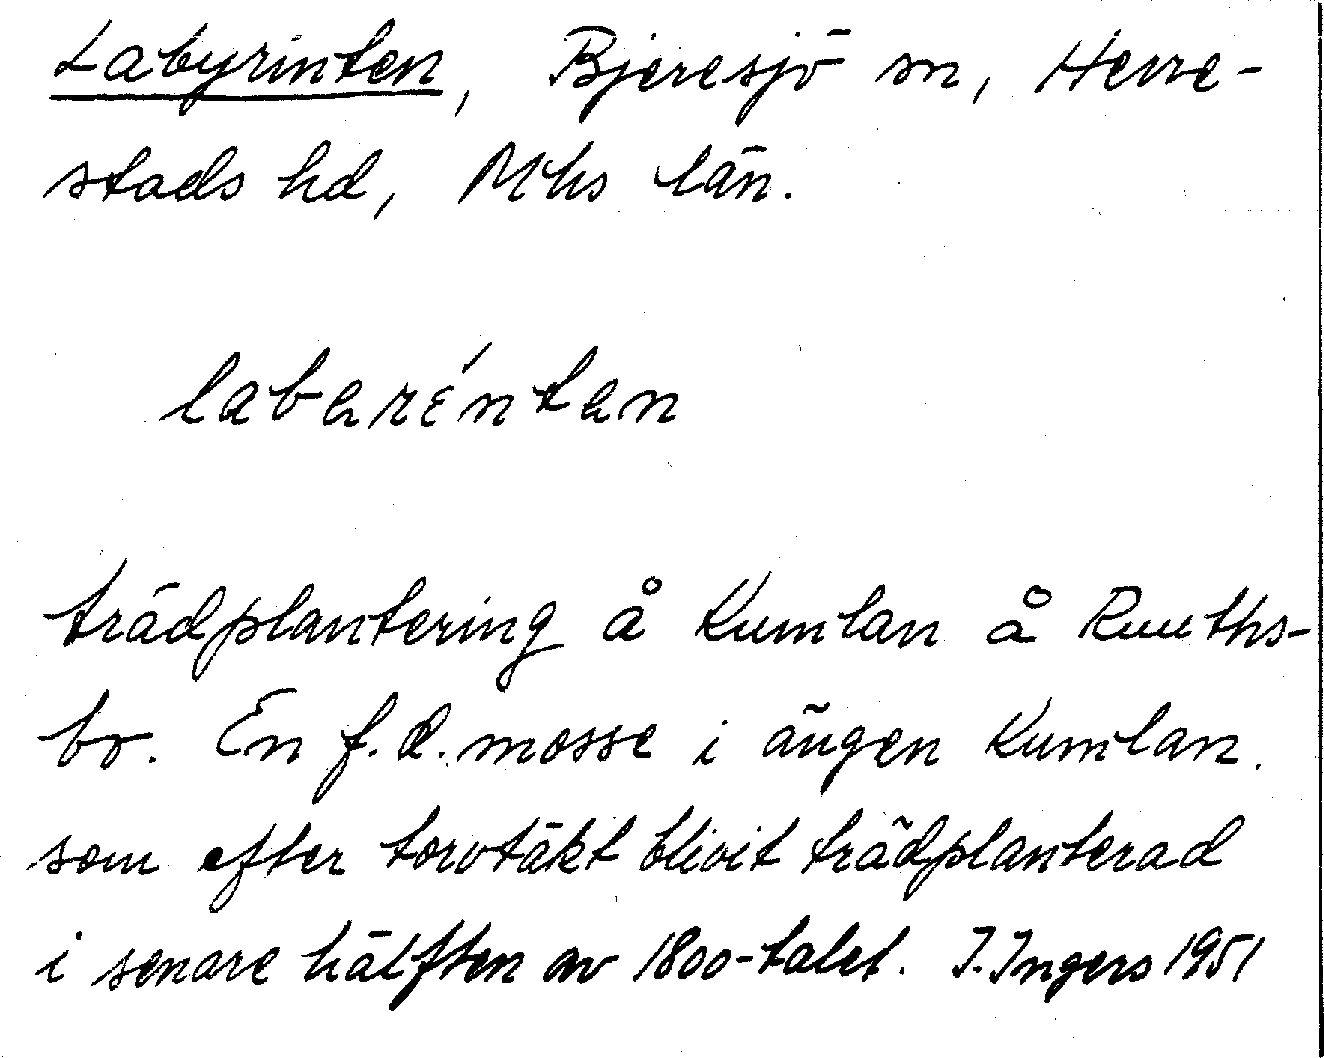 Labyrinten, Bjeresjö sn, Herre-
stads hd, Mhs län.
labaréntan
trädplantering å Kumlan å Ruuths-
bo. En f.d. mosse i ängen Kumlan.
som efter torvtäkt blivit trädplanterad
i senare hälften av 1800-talet. I. Ingers 1951